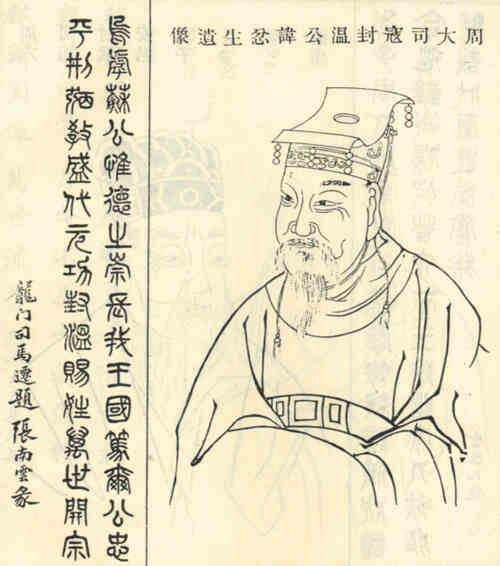 周大司寇封溫公諱忿生遺像
烏虖蘇公惟德之崇長我王國篤爾公忠
平刑弼教盛代元功封溫賜姓萬世開宗
龍门司馬遷題 張南雲篆